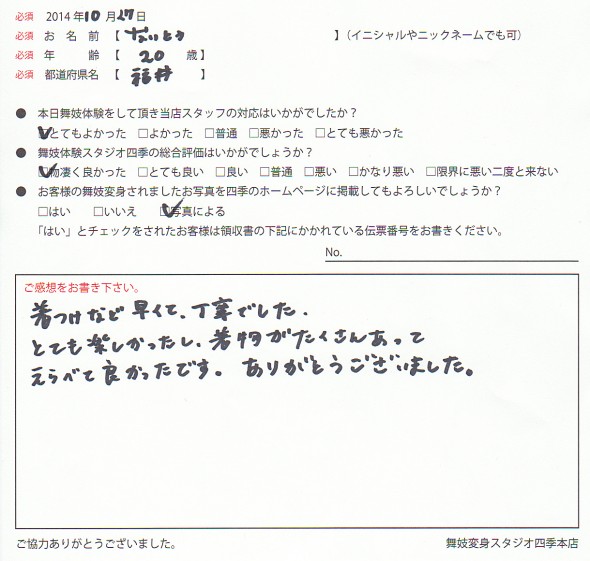 必須 2014年10月27日
必須 お名前【 ないとう 】(イニシャルやニックネームでも可)
必須 年齢【 20 歳】
必須 都道府県名【 福井 】
● 本日舞妓体験をして頂き当店スタッフの対応はいかがでしたか？
☑とてもよかった □よかった □普通 □悪かった □とても悪かった
● 舞妓体験スタジオ四季の総合評価はいかがでしょうか？
☑物凄く良かった □とても良い □良い □普通 □悪い □かなり悪い □限界に悪い二度と来ない
● お客様の舞妓変身されましたお写真を四季のホームページに掲載してもよろしいでしょうか？
□はい □いいえ ☑写真による
「はい」とチェックをされたお客様は領収書の下記にかかれている伝票番号をお書きください。
No.
ご感想をお書き下さい。
着つけなど早くて、丁寧でした.
とても楽しかったし、着物がたくさんあって
えらべて良かったです。ありがとうございました。
ご協力ありがとうございました。
舞妓変身スタジオ四季本店